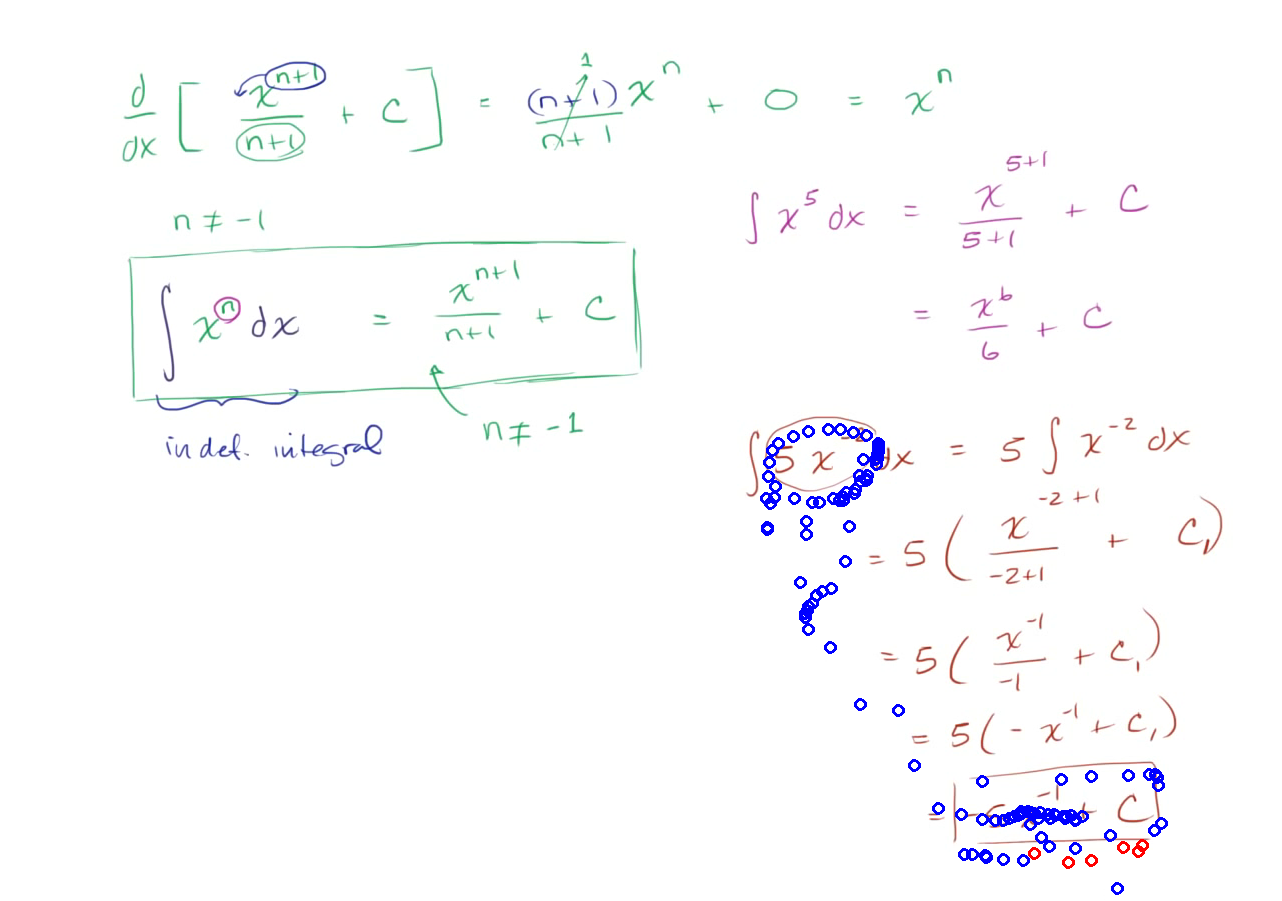 d/dx [ x^(n+1)/(n+1) + C ] = (n+1)x^n/(n+1) 1 + 0 = x^n
n ≠ -1
∫ x^n dx = x^(n+1)/(n+1) + C
n ≠ -1
indef. integral
∫ x^5 dx = x^(5+1)/(5+1) + C
= x^6/6 + C
∫ 5 x dx = 5 ∫ x^(-2) dx
= 5 ( x^(-2+1)/(-2+1) + C₁ )
= 5 ( x^(-1)/(-1) + C₁ )
= 5 ( - x^(-1) + C₁ )
= -1 + C